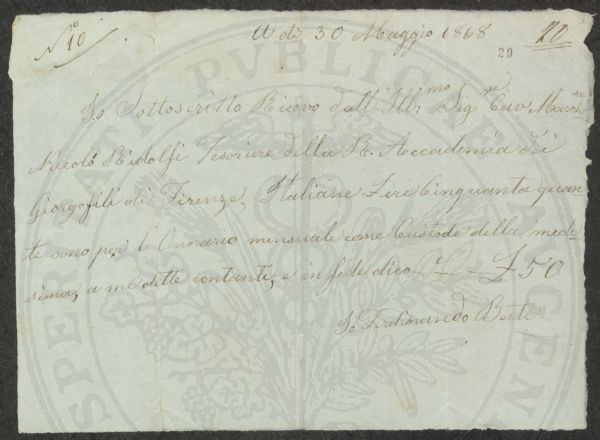 N.º 10
A dì 30 Maggio 1868
10
29
Io Sottoscritto Ricevo dall' Ill:mo Sig.re Cav. March.se
Nicolò Ridolfi Tesoriere della R. Accademia dei
Giorgofili di Firenze, Italiane Lire Cinquanta quan-
te sono per l'Onorario mensuale come Custode della mede-
sima, a me dette contanti, e in fede dico - £ 50
Io Ferdinando Berti
PUBLICAE
PROSPERITATI